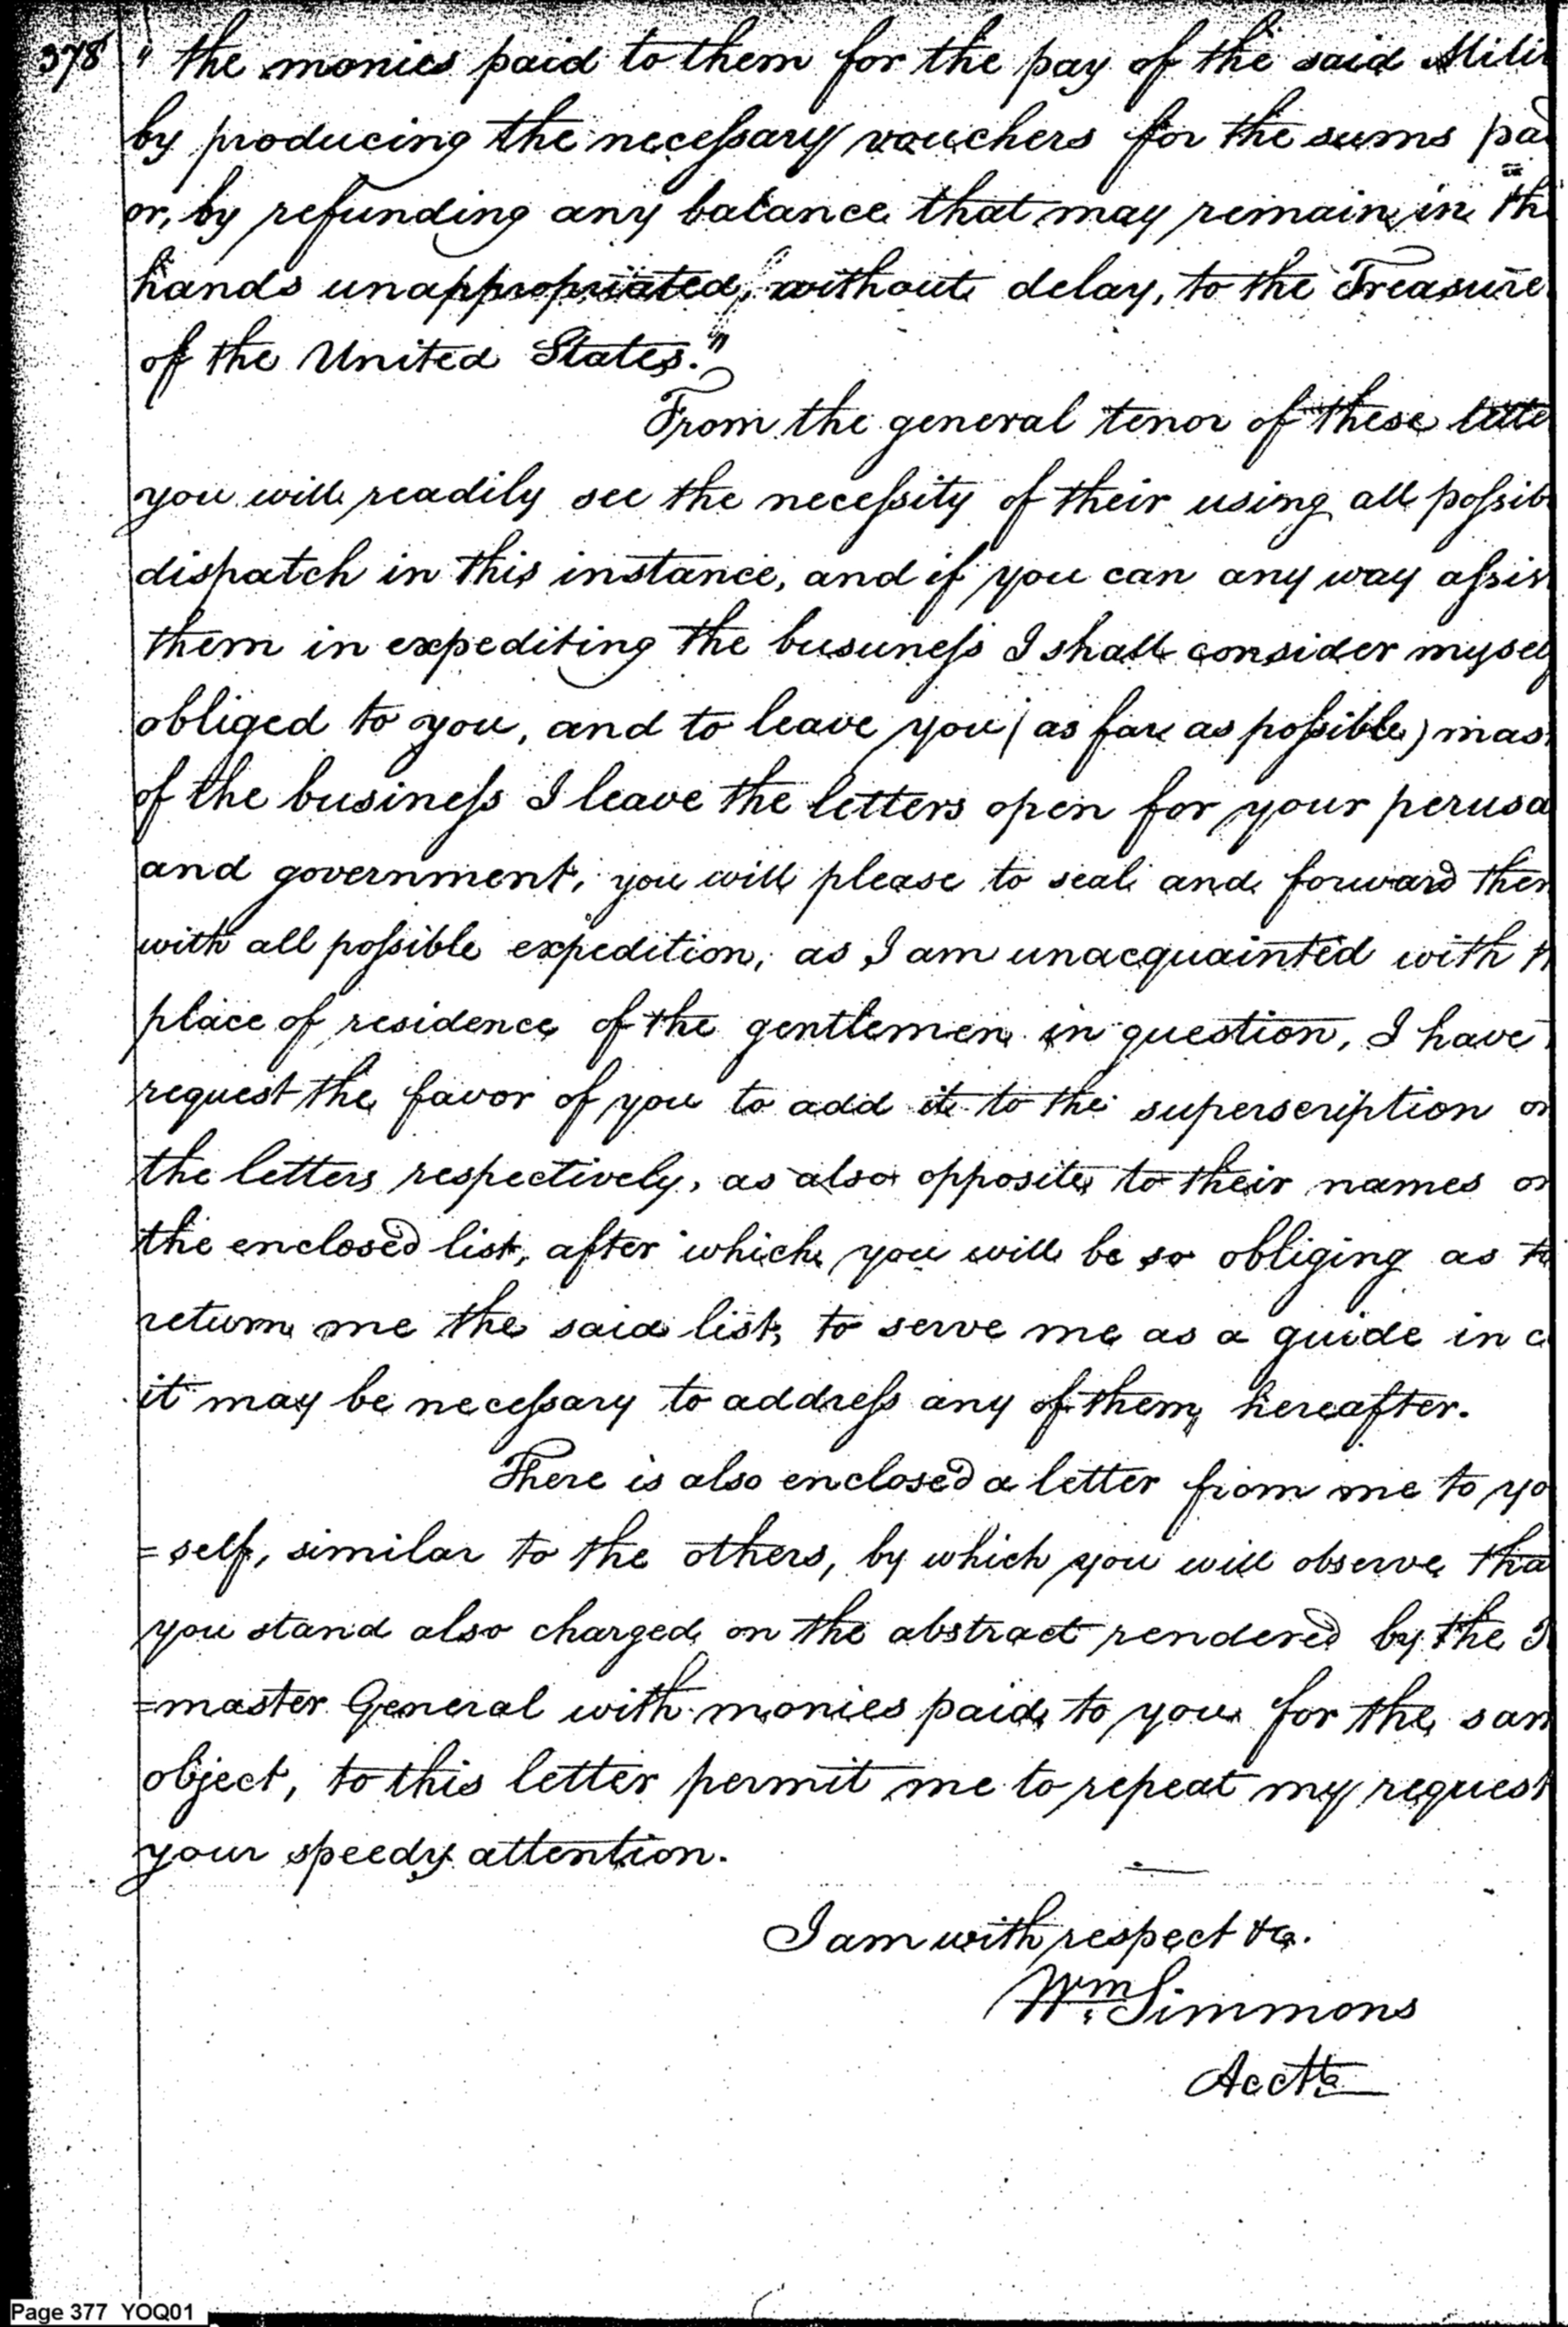 378 " the monies paid to them for the pay of the said Mili
by producing the necessary vouchers for the sums pa
or, by refunding any balance that may remain in th
hands unappropriated, without delay, to the Treasure
of the United States."
From the general tenor of these lette
you will readily see the necessity of their using all possib
dispatch in this instance, and if you can any way assis
them in expediting the busuness I shall consider mysel
obliged to you, and to leave you (as far as possible) mas
of the business I leave the letters open for your perusa
and government, you will please to seal and forward them
with all possible expedition, as I am unacquainted with th
place of residence of the gentlemen in question, I have
request the favor of you to add it to the superscription on
the letters respectively, as also opposite to their names on
the enclosed list, after which you will be so obliging as to
return me the said list, to serve me as a guide in c
it may be necessary to address any of them hereafter.
There is also enclosed a letter from me to yo
=self, similar to the others, by which you will observe tha
you stand also charged on the abstract rendered by the
=master General with monies paid to you for the sam
object, to this letter permit me to repeat my request
your speedy attention.
I am with respect &c.
Wm Simmons
Acctt
Page 377 YOQ01